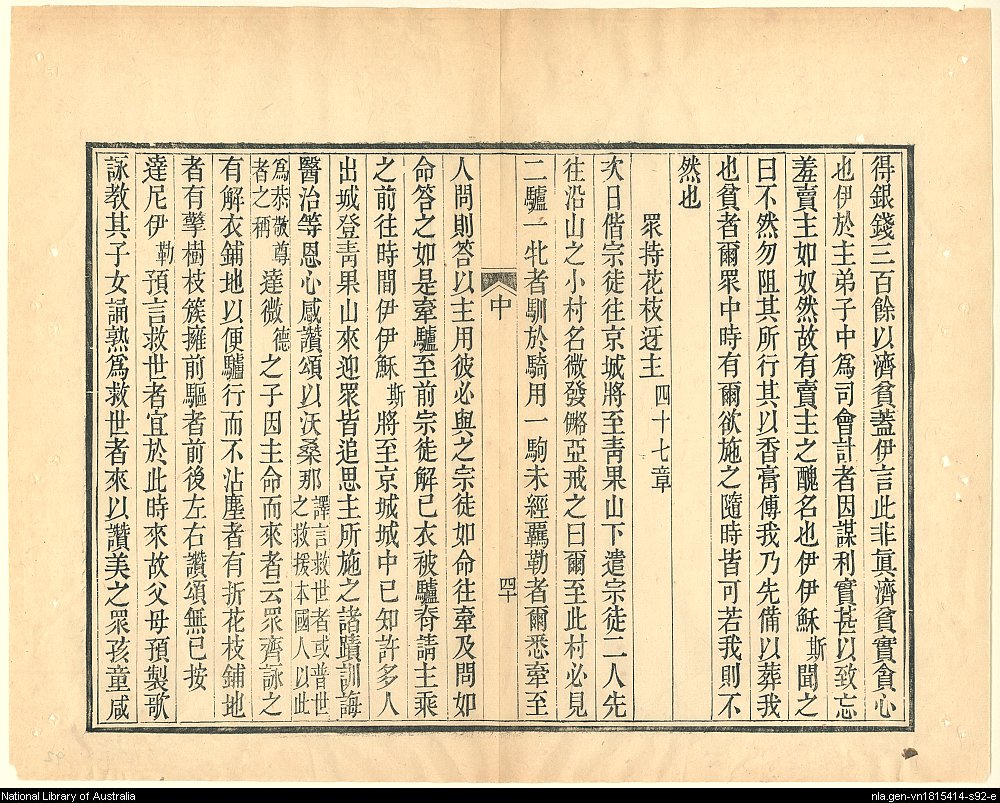 得銀錢三百餘以濟貧蓋伊言此非眞濟貧實貪心
也伊於主弟子中爲司會計者因謀利實甚以致忘
羞賣主如奴然故有賣主之醜名也伊伊穌斯聞之
曰不然勿阻其所行其以香膏傅我乃先備以葬我
也貧者爾眾中時有爾欲施之隨時皆可若我則不
然也
眾持花枝迓主 四十七章
次日偕宗徒往京城將至靑果山下遣宗徒二人先
往沿山之小村名微發𠐺亞戒之曰爾至此村必見
二驢一牝者馴於騎用一駒未經羈勒者爾悉牽至
中 四十
人問則答以主用彼必與之宗徒如命往牽及問如
命答之如是牽驢至前宗徒解已衣被驢脊請主乘
之前往時間伊伊穌斯將至京城城中已知許多人
出城登靑果山來迎眾皆追思主所施之諸蹟訓誨
醫治等恩心感讚頌以沃桑那譯言救世者或普世之救援本國人以此
爲恭敬尊者之稱達微德之子因主命而來者云眾齊詠之
有解衣鋪地以便驢行而不沾塵者有折花枝鋪地
者有擎樹枝簇擁前驅者前後左右讚頌無已按
達尼伊勒預言救世者宜於此時來故父母預製歌
詠教其子女誦熟爲救世者來以讚美之眾孩童咸
National Library of Australia
nla.gen-vn1815414-s92-e